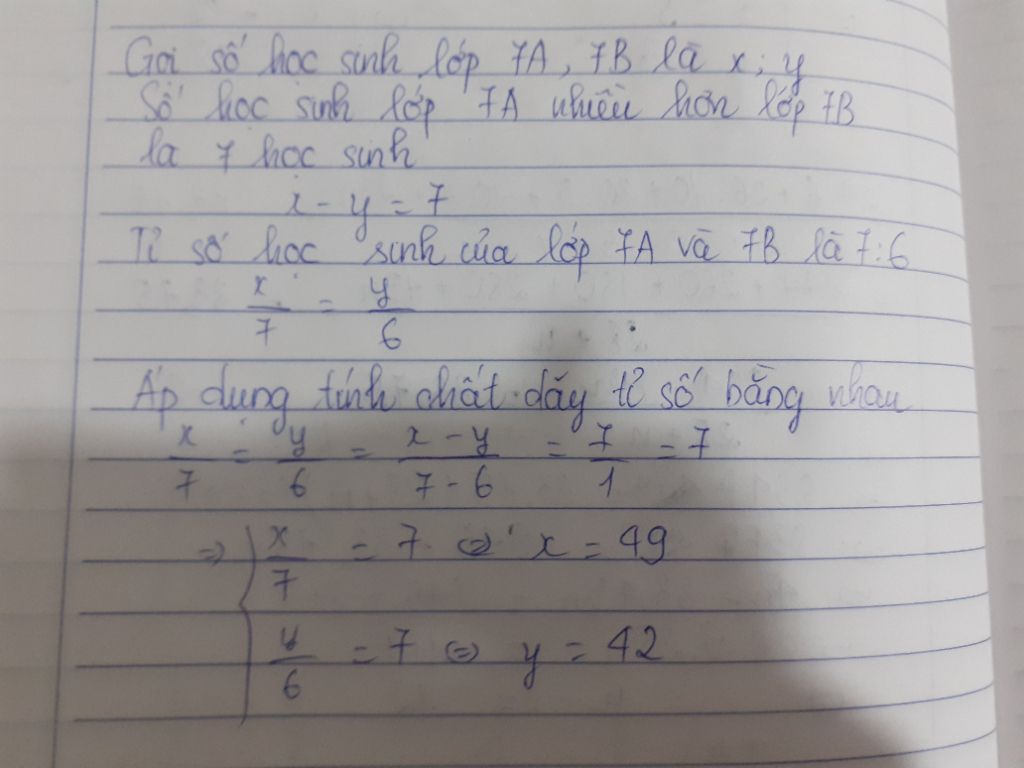 Gọi số học sinh lớp 7A, 7B là x; y
Số học sinh lớp 7A nhiều hơn lớp 7B
là 7 học sinh
x - y = 7
Tỉ số học sinh của lớp 7A và 7B là 7:6
x/7 = y/6
Áp dụng tính chất dãy tỉ số bằng nhau
x/7 = y/6 = (x - y)/(7 - 6) = 7/1 = 7
=> { x/7 = 7 <=> x = 49
y/6 = 7 <=> y = 42